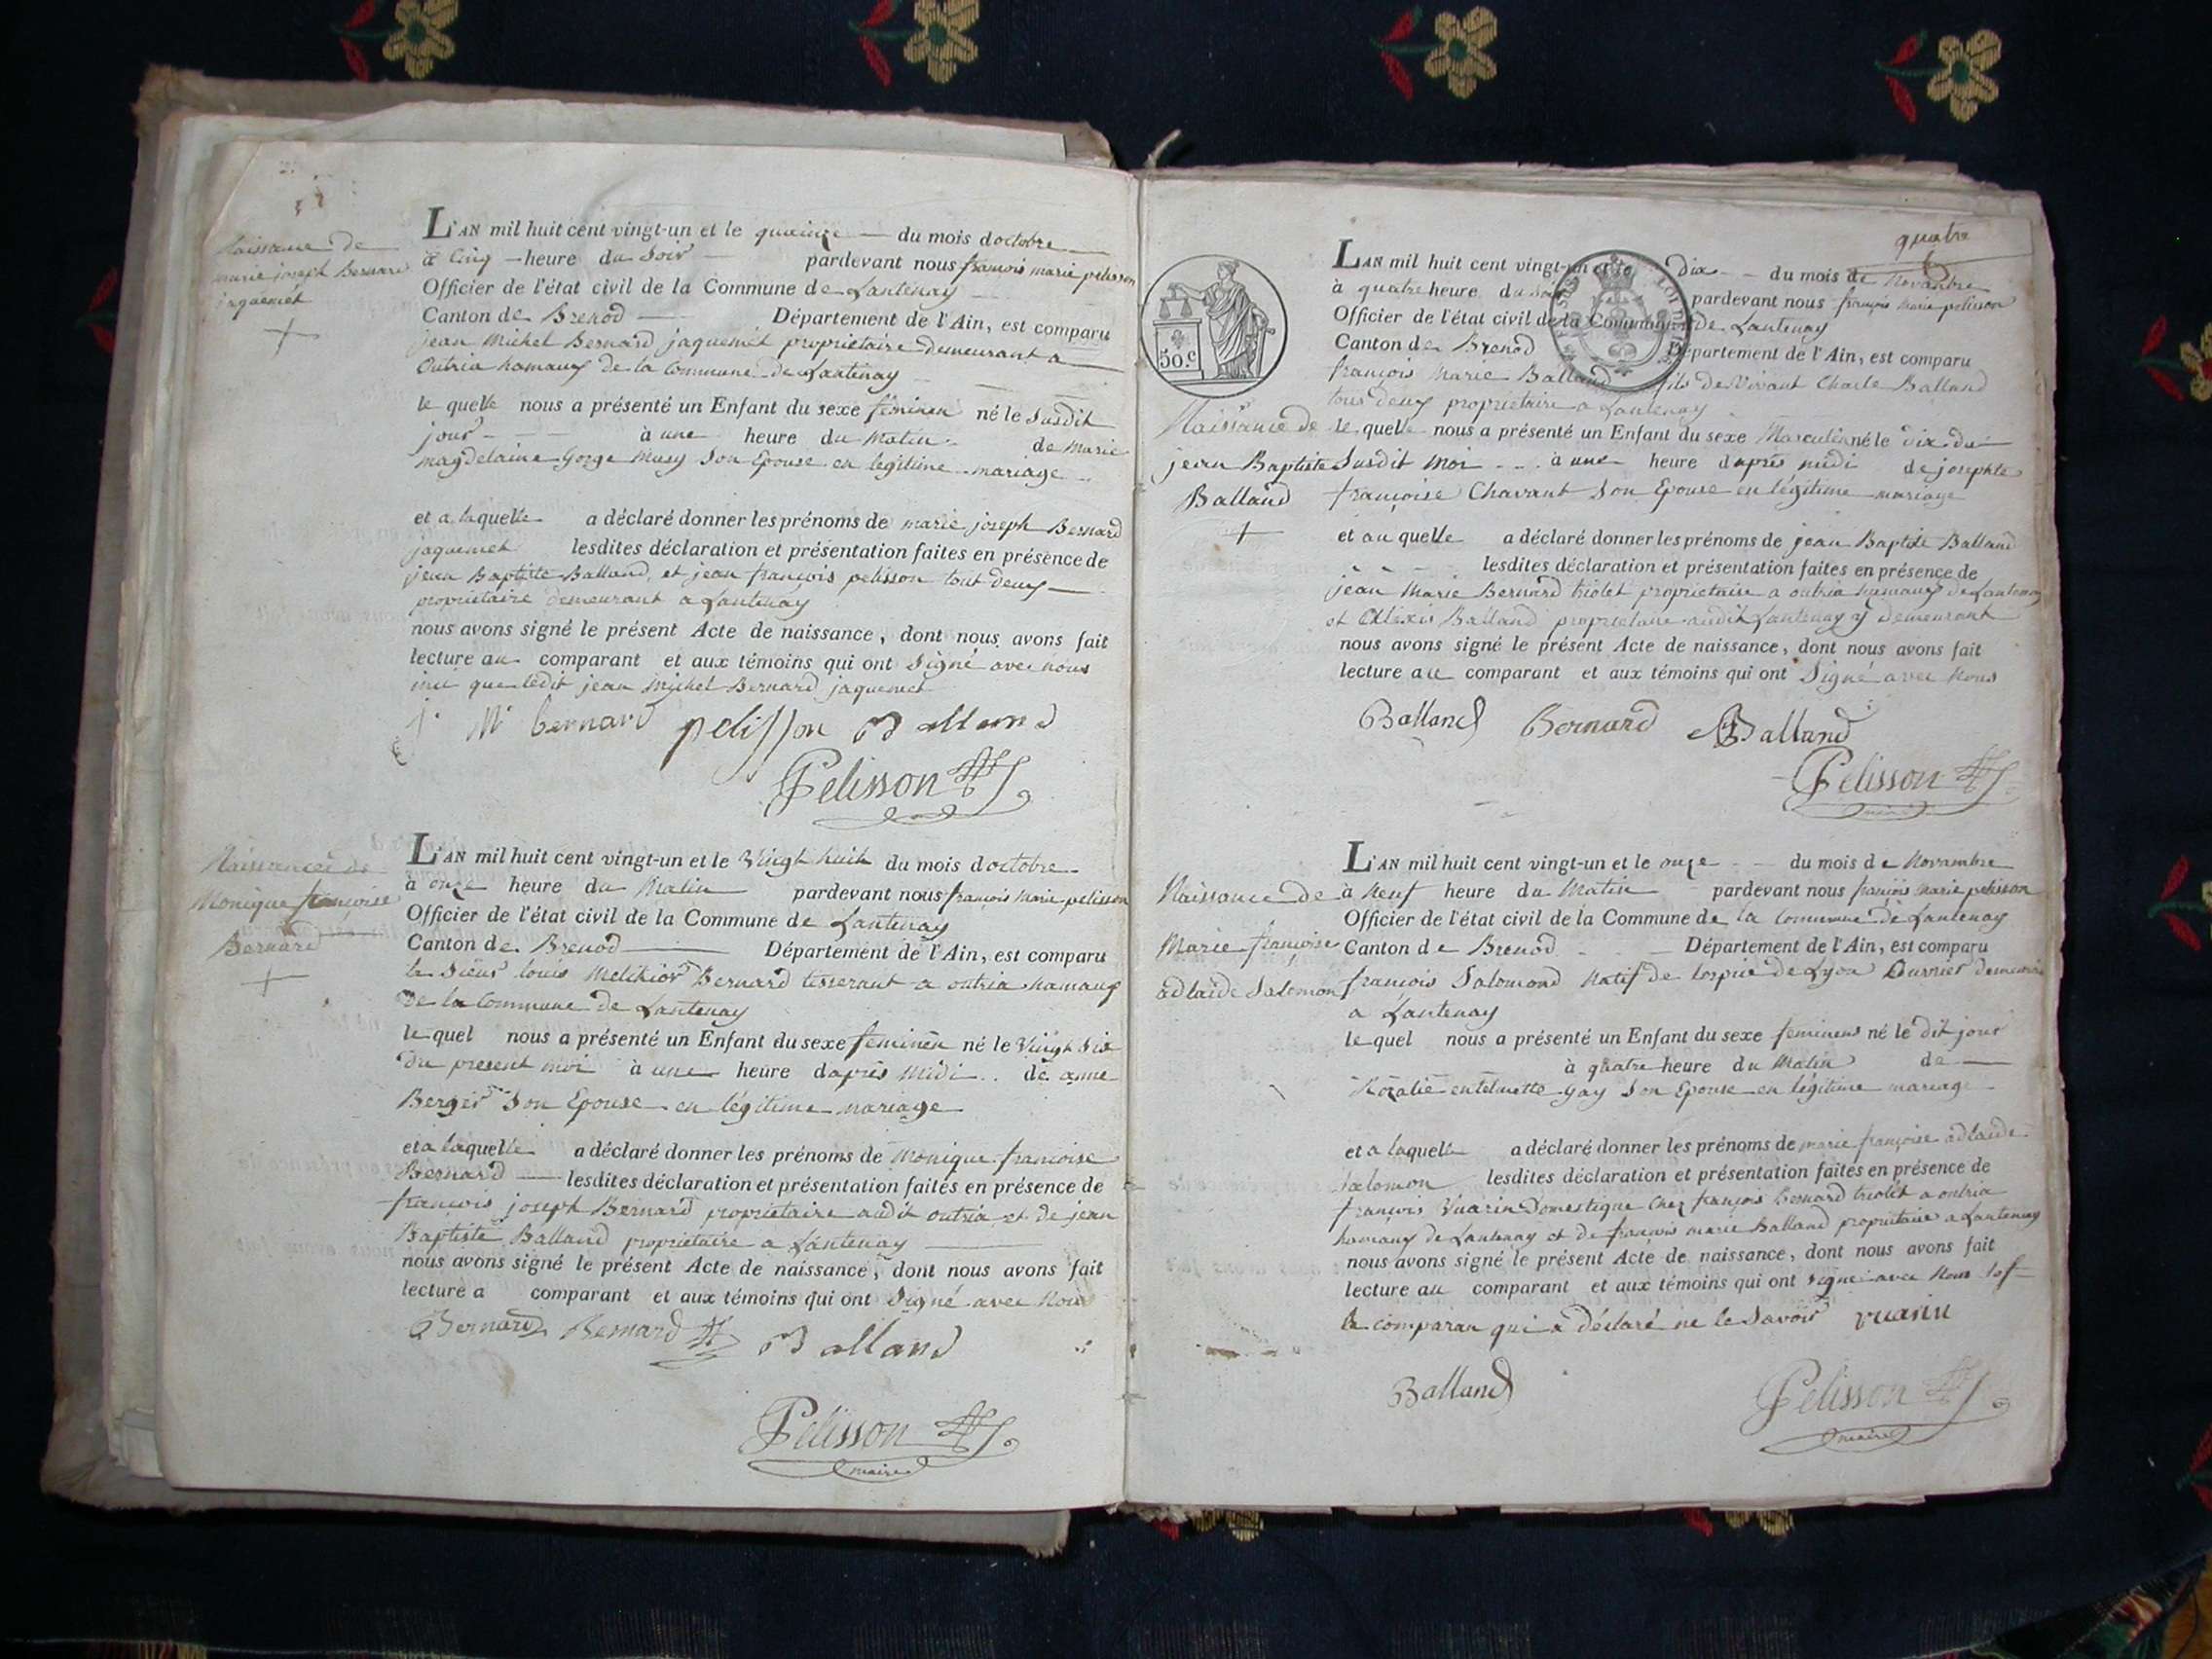 Naissance de
marie joseph Bernard
jaquemet
L'AN mil huit cent vingt-un et le quinze du mois doctobre
à Cinq heure du Soir pardevant nous françois marie pelisson
Officier de l'état civil de la Commune de Lantenay
Canton de Brenod Département de l'Ain, est comparu
jean Michel Bernard jaquemet proprietaire demeurant a
Outria hamaux de la Commune de Lantenay
le quelle nous a présenté un Enfant du sexe féminen né le Susdit
jour à une heure du Matin de marie
magdelaine Gorge Musy Son Epouse en legitime mariage
et a laquelle a déclaré donner les prénoms de marie joseph Bernard
jaquemet lesdites déclaration et présentation faites en présence de
jean Baptiste Balland, et jean françois pelisson tout deux
proprietaire demeurant a Lantenay
nous avons signé le présent Acte de naissance, dont nous avons fait
lecture au comparant et aux témoins qui ont Signé avec nous
que ledit jean Michel Bernard jaquemet
j. M. bernard pelisson Balland
Pelisson
Naissances de
Monique françoise
Bernard
L'AN mil huit cent vingt-un et le Vingt huit du mois doctobre
à onze heure du Matin pardevant nous françois Marie pelisson
Officier de l'état civil de la Commune de Lantenay
Canton de Brenod Département de l'Ain, est comparu
le Sieur louis Melikior Bernard tisserant a outria hamaux
de la Commune de Lantenay
le quel nous a présenté un Enfant du sexe féminen né le Vingt Six
du present moi à une heure daprès Midi de anne
Berger Son Epouse en légitime mariage
et a laquelle a déclaré donner les prénoms de Monique françoise
Bernard lesdites déclaration et présentation faites en présence de
françois joseph Bernard proprietaire audit outria et de jean
Baptiste Balland proprietaire a Lantenay
nous avons signé le présent Acte de naissance, dont nous avons fait
lecture a comparant et aux témoins qui ont Signé avec Nous
Bernard Bernard Balland
Pelisson
maire
quatre
50.c
Naissance de
jean Baptiste
Balland
L'AN mil huit cent vingt-un et le dix du mois de Novambre
à quatre heure du Soir pardevant nous françois Marie pelisson
Officier de l'état civil de la Commune de Lantenay
Canton de Brenod Département de l'Ain, est comparu
françois Marie Balland fils de Vivant Charle Balland
tous deux proprietaire a Lantenay
le quelle nous a présenté un Enfant du sexe Masculin né le dix du
Susdit Moi à une heure daprès midi de josephte
françoise Chavant Son Epouse en légitime mariage
et au quelle a déclaré donner les prénoms de jean Baptiste Balland
lesdites déclaration et présentation faites en présence de
jean Marie Bernard triolet proprietaire a outria hamaux de Lantenay
et Alexis Balland proprietaire audit Lantenay y demeurant
nous avons signé le présent Acte de naissance, dont nous avons fait
lecture au comparant et aux témoins qui ont Signé avec Nous
Balland Bernard ABalland
Pelisson
maire
Naissance de
Marie françoise
adlaide Salomon
L'AN mil huit cent vingt-un et le onze du mois de Novambre
à Neuf heure du Matin pardevant nous françois Marie pelisson
Officier de l'état civil de la Commune de la Commune de Lantenay
Canton de Brenod Département de l'Ain, est comparu
françois Salomond Natif de lospice de Lyon Ouvrier
a Lantenay
le quel nous a présenté un Enfant du sexe feminens né le dit jour
à quatre heure du Matin de
Rozalie entelmette Gay Son Epouse en légitime mariage
et a laquelle a déclaré donner les prénoms de marie françoise adlaide
Salomon lesdites déclaration et présentation faites en présence de
françois Vuarin Domestique Chez françois Bernard triolet a outria
hamaux de Lantenay et de françois marie Balland proprietaire a Lantenay
nous avons signé le présent Acte de naissance, dont nous avons fait
lecture au comparant et aux témoins qui ont signé avec Nous
le comparan qui a déclaré ne le Savoir vuarin
Balland Pelisson
maire